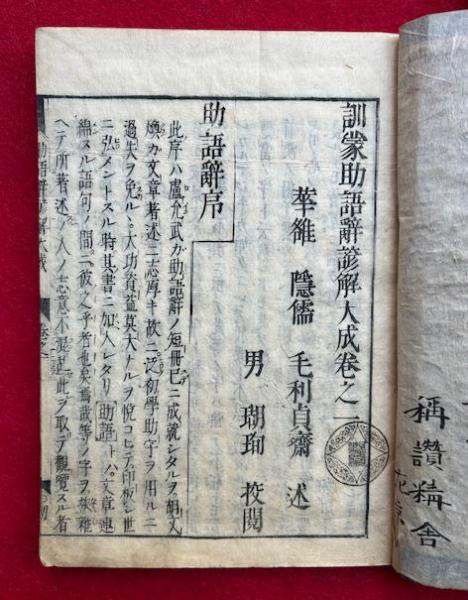 訓蒙助語辭諺解大成卷之一
華雒 隱儒 毛利貞齋 述
男 瑚珣 校閲
助語辭序
此序ハ盧允武ガ助語辭ノ短冊已ニ成就シタルヲ胡文
煥カ文章著述ニ志厚キ故ニ後初學助字ヲ用ルニ
過失ヲ免ル大功資益莫大ナルヲ悦コヒテ印板シ世
ニ弘メントスル時其書ニ加入レタリ助語トハ文章連
綿スル語句ノ間ニ彼之乎者也矣焉哉等ノ字ヲ
ヘテ所著述ノ人ノ志意
此ヲ取テ觀覽スル者
助語辭諺解大成
稱讚精舎